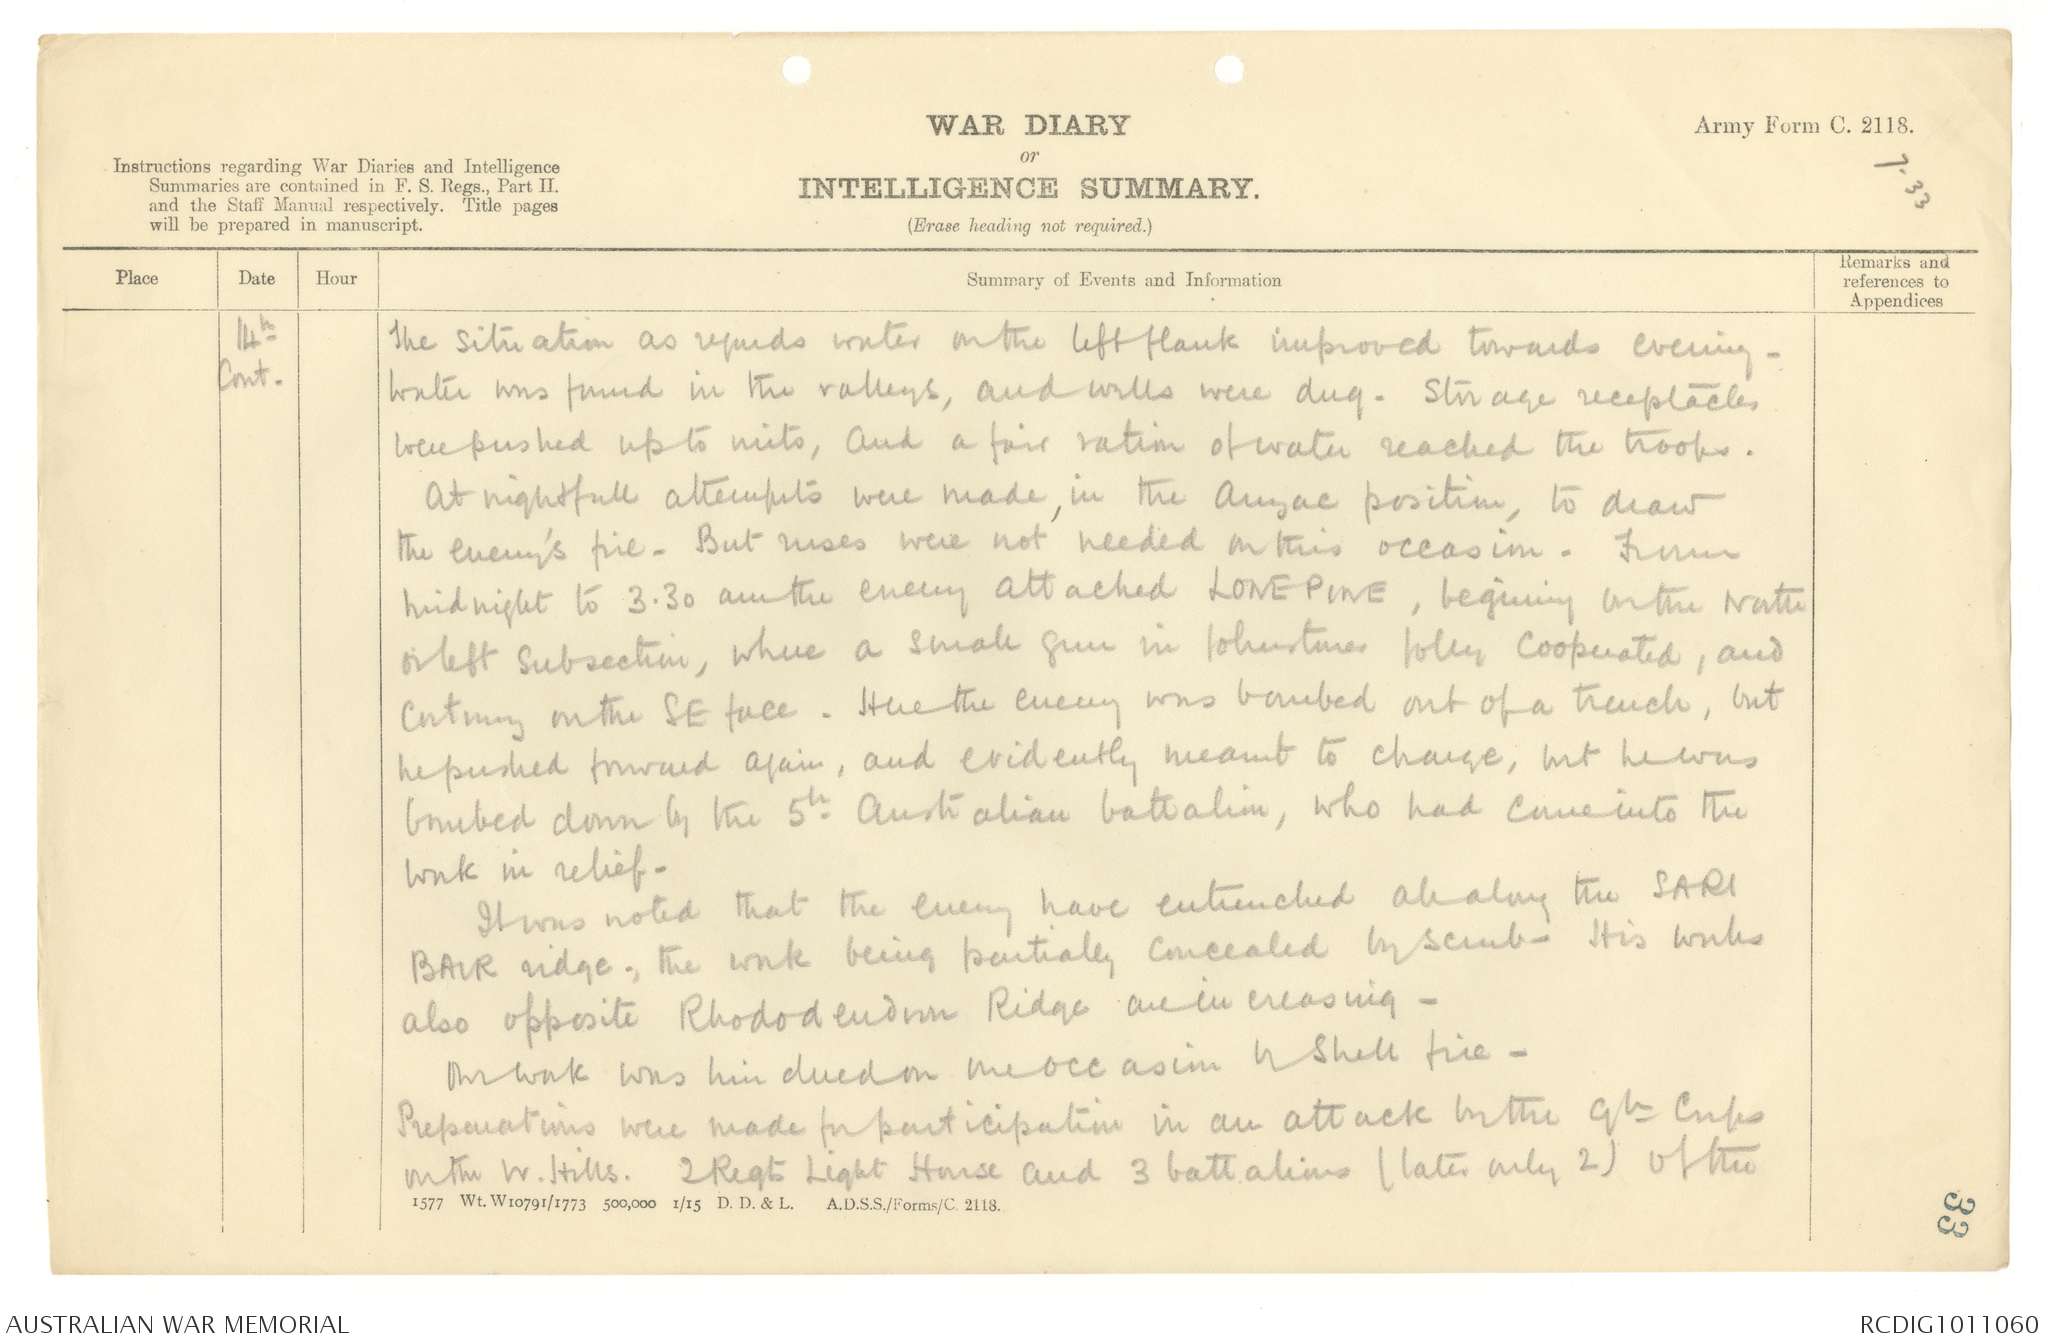 WAR DIARY
or
INTELLIGENCE SUMMARY.
(Erase heading not required.)
Army Form C. 2118.
7-33
Instructions regarding War Diaries and Intelligence
Summaries are contained in F. S. Regs., Part II.
and the Staff Manual respectively. Title pages
will be prepared in manuscript.
Place
Date
Hour
Summary of Events and Information
Remarks and
references to
Appendices
14th
Cont.
The situation as regards water on the left flank improved towards evening -
Water was found in the valleys, and wells were dug. Storage receptacles
were pushed up to units, and a fair ration of water reached the troops.
At nightfall attempts were made, in the Anzac position, to draw
the enemy's fire - But ruses were not needed on this occasion. From
midnight to 3.30 am the enemy attacked LONEPINE, begining on the North
or left subsection, where a small gun in Johnstones Jolly cooperated, and
on the SE face. Here the enemy was bombed out of a trench, but
he pushed forward again, and evidently meant to charge, but he was
bombed down by the 5th Australian battalion, who had come into the
work in relief -
It was noted that the enemy have entrenched all along the SARI
BAIR ridge -, the work being partially concealed by scrub - His works
also opposite Rhododendron Ridge are increasing -
Our work was hindered on one occasion by shell fire -
Preparations were made for participation in an attack by the 9th Corps
on the W. Hills. 2 Regts Light Horse and 3 battalions (later only 2) of the
1577 Wt. W10791/1773 500,000 1/15 D. D. & L. A.D.S.S./Forms/C. 2118.
33
AUSTRALIAN WAR MEMORIAL
RCDIG1011060